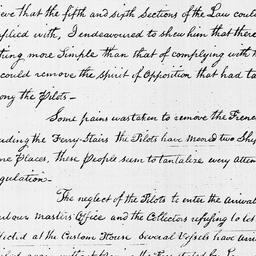 eve that the fifth and sixth Sections of the Law could
plied with, I endeavoured to shew him that there
ting more Simple than that of complying with
could remove the Spirit of Opposition that had ta
ong the Pilots —
Some pains was taken to remove the Frene
uding the Ferry-Stairs the Pilots have moored two Ship
me Places, these People seem to tantalize every attem
gulation —
The neglect of the Pilots to enter the arrival
rbour masters Office and the Collectors refusing to let
ected at the Custom House Several Vessels have arri